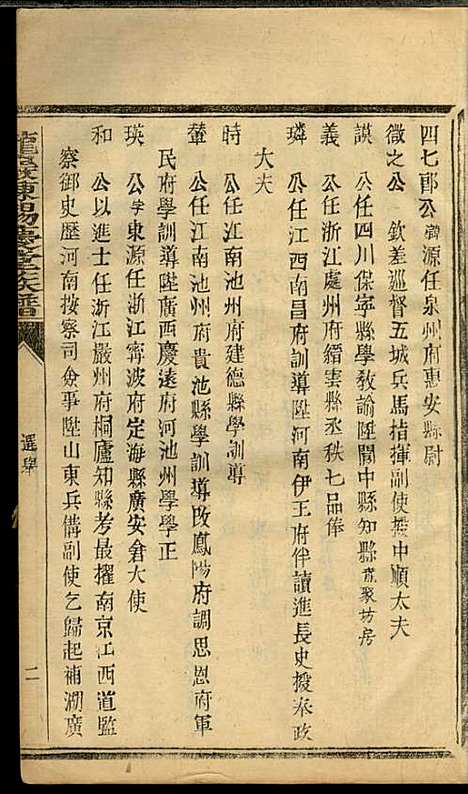 四七郎公諱源任泉州府惠安縣尉
微之公 欽差巡督五城兵馬指揮副使授中順大夫
謨 公任四川保寧縣學教諭陞閬中縣知縣育聚坊房
義 公任浙江處州府縉雲縣丞秩七品俸
璘 公任江西南昌府訓導陞河南伊王府伴讀進長史授奉政
大夫
時 公任江南池州府建德縣學訓導
輦 公任江南池州府貴池縣學訓導改鳳陽府調思恩府軍
民府學訓導陞廣西慶遠府河池州學學正
瑛 公字東源任浙江寧波府定海縣廣安倉大使
和 公以進士任浙江嚴州府桐廬知縣考最擢南京江西道監
察御史歷河南按察司僉事陞山東兵備副使乞歸起補湖廣
族譜
選舉
二